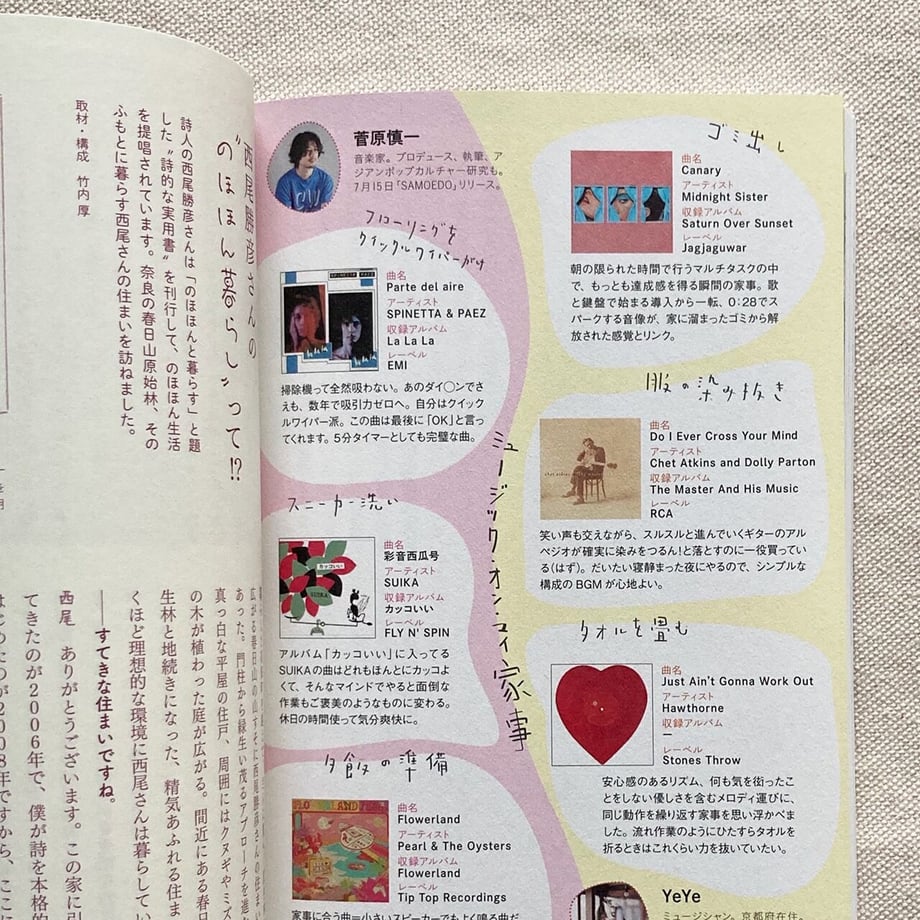 西尾勝彦さんの
“のほほん暮らし”って!?
詩人の西尾勝彦さんは「のほほんと暮らす」と題
した“詩的な実用書”を刊行して、のほほん生活
を提唱されています。奈良の春日山原始林、その
ふもとに暮らす西尾さんの住まいを訪ねました。
取材・構成　竹内 厚
広がる春日山の山すそに西尾勝彦さんの住まい
あった。門柱から緑生い茂るアプローチを進
真っ白な平屋の住戸、周囲にはクヌギやミズ
の木が植わった庭が広がる。間近にある春日
生林と地続きになった、精気あふれる住ま
くほど理想的な環境に西尾さんは暮らしてい
──すてきな住まいですね。
西尾　ありがとうございます。この家に引
てきたのが2006年で、僕が詩を本格的
はじめたのが2008年ですから、ここ
ミュージック・オン・マイ家事
菅原慎一
音楽家。プロデュース、執筆、ア
ジアンポップカルチャー研究も。
7月15日「SAMOEDO」リリース。
フローリングを
クイックルワイパーがけ
曲名
Parte del aire
アーティスト
SPINETTA & PAEZ
収録アルバム
La La La
レーベル
EMI
掃除機って全然吸わない。あのダイ○ンでさ
えも、数年で吸引力ゼロへ。自分はクイック
ルワイパー派。この曲は最後に「OK」と言っ
てくれます。5分タイマーとしても完璧な曲。
スニーカー洗い
カッコいい
SUIKA
曲名
彩音西瓜号
アーティスト
SUIKA
収録アルバム
カッコいい
レーベル
FLY N' SPIN
アルバム「カッコいい」に入ってる
SUIKAの曲はどれもほんとにカッコよ
くて、そんなマインドでやると面倒な
作業もご褒美のようなものに変わる。
休日の時間使って気分爽快に。
夕飯の準備
曲名
Flowerland
アーティスト
Pearl & The Oysters
収録アルバム
Flowerland
レーベル
Tip Top Recordings
家事に合う曲=小さいスピーカーでもよく鳴る曲だ
ゴミ出し
曲名
Canary
アーティスト
Midnight Sister
収録アルバム
Saturn Over Sunset
レーベル
Jagjaguwar
朝の限られた時間で行うマルチタスクの中
で、もっとも達成感を得る瞬間の家事。歌
と鍵盤で始まる導入から一転、0:28でス
パークする音像が、家に溜まったゴミから解
放された感覚とリンク。
服の染み抜き
曲名
Do I Ever Cross Your Mind
アーティスト
Chet Atkins and Dolly Parton
収録アルバム
The Master And His Music
レーベル
RCA
笑い声も交えながら、スルスルと進んでいくギターのアル
ペジオが確実に染みをつるん!と落とすのに一役買ってい
る(はず)。だいたい寝静まった夜にやるので、シンプルな
構成のBGMが心地よい。
タオルを畳む
曲名
Just Ain't Gonna Work Out
アーティスト
Hawthorne
収録アルバム
ー
レーベル
Stones Throw
安心感のあるリズム、何も気を衒ったこ
とをしない優しさを含むメロディ運びに、
同じ動作を繰り返す家事を思い浮かべま
した。流れ作業のようにひたすらタオルを
折るときはこれくらい力を抜いていたい。
YeYe
ミュージシャン。京都府在住。